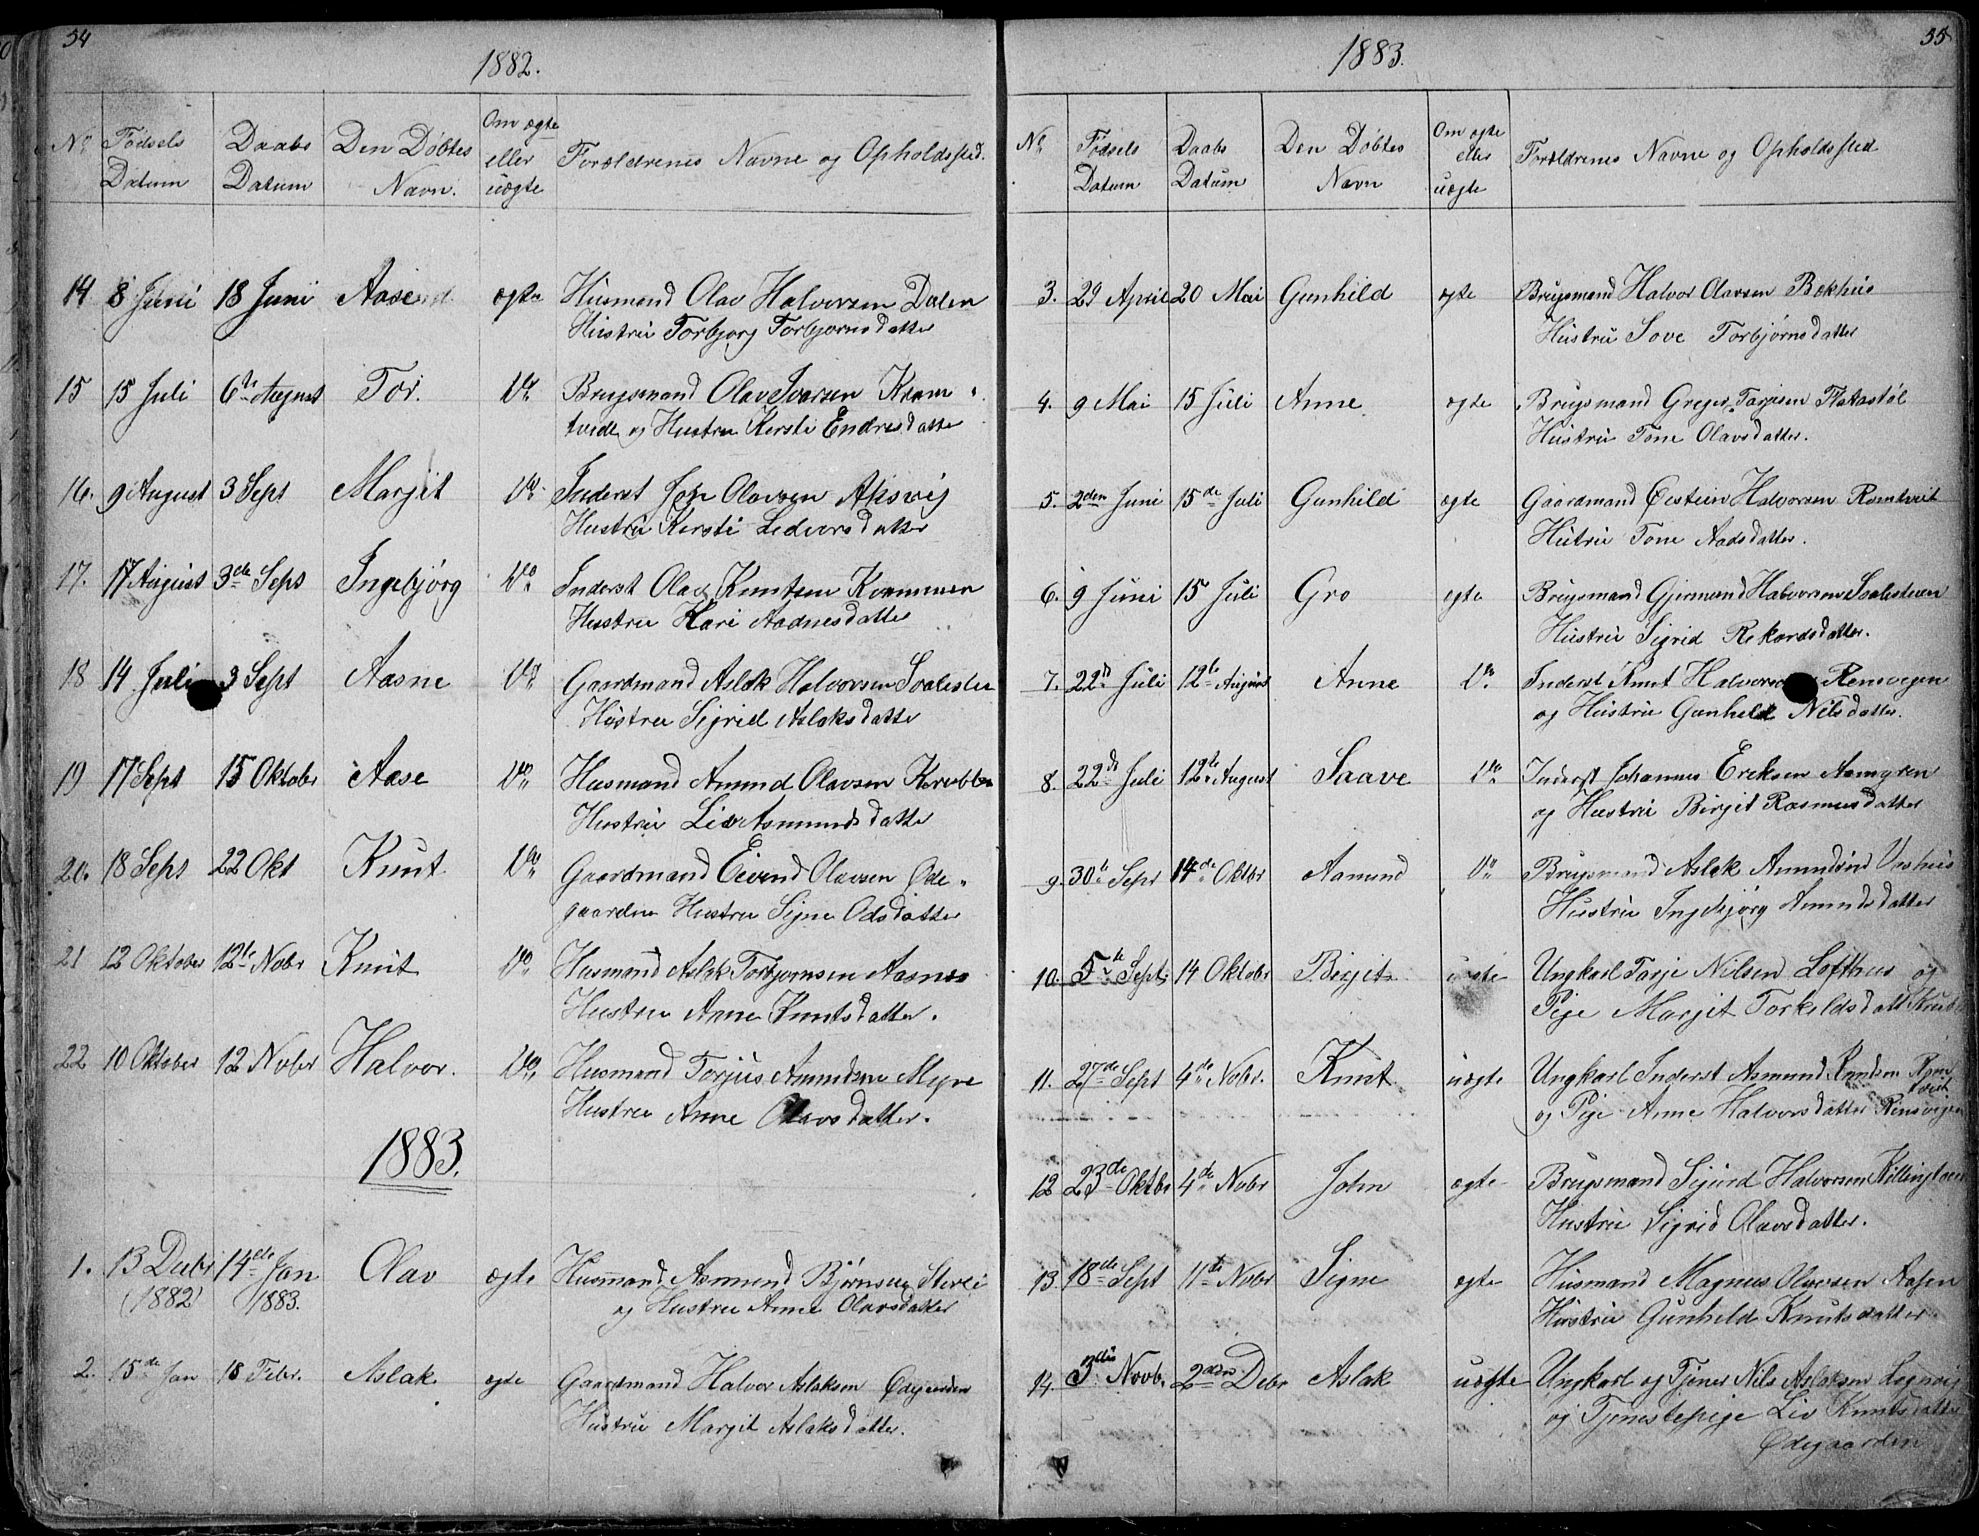 54
1882.
No Fødsels Datum Daabs Datum Den Døbtes Navn. Om ægte eller uægte Forældrenes Navne og Opholdssted.
14 8 Juni 18 Juni Aase ægte Husmand Olav Halvorsen Dalen
Hustru Torbjorg Torbjornsdatter
15 15 Juli 6te August Tor. Do Brugsmand Olav Ivarsen Kram-
tvede og Hustru Kersti Endresdatter
16. 9 August 3 Sept Margit Do Inderst Jon Olavsen Aksvig
Hustru Kersti Ledvorsdatter
17. 17 August 3die Sept Ingebjørg Do Inderst Olav Knutsen Kvammen
Hustru Kari Aadnesdatter
18 14 Juli 3 Sept Aasne Do Gaardmand Aslak Halvorsen Soalesten
Hustru Sigrid Aslaksdatter
19 17 Sept 15 Oktobr Aase Do Husmand Amund Olavsen
Hustru Liv Asmundsdatter
20. 18 Sept 22 Okt Knut Do Gaardmand Eivend Olavsen Øde-
gaarden Hustru Signe Odsdatter
21 12 Oktober 12te Nobr Knut Do Husmand Aslak Torbjornsen Aasnes
Hustru Anne Knutsdatter.
22 10 Oktober 12 Nobr Halvor. Do Husmand Torjus Amundsen Myre
Hustru Anne Olavsdatter.
1883.
1. 13 Decbr 14de Jan Olav ægte Husmand Asmund Bjørnsen
(1882) 1883. og Hustru Anne Olavsdatter
2. 15de Jan 18 Febr. Aslak ægte Gaardmand Halvor Aslaksen Ødegaarden
Hustru Margit Aslaksdatter.
55
1883.
No Fødsels Datum Daabs Datum Den Døbtes Navn Om ægte eller uægte Forældrenes Navne og Opholdssted
3. 29 April 20 Mai Gunhild ægte Brugsmand Halvor Olavsen Bakhus
Hustru Sove Torbjørnsdatter
4. 9 Mai 15 Juli Anne ægte Brugsmand Greger Tarjesen Flatastøl
Hustru Tone Olavsdatter.
5. 2den Juni 15de Juli Gunhild ægte Gaardmand Eistein Halvorsen Ramtveit
Hutru Tone Aadsdatter.
6. 9 Juni 15 Juli Gro ægte Brugsmand Gjermund Halvorsen Soalesteen
Hustru Sigrid Rekardsdatter.
7. 22de Juli 12te August Anne Do Inderst Knut Halvorsen Rensvegen
og Hustru Gunheld Nilsdatter.
8. 22de Juli 12te August Saave Do Inderst Johannes Eriksen
og Hustru Birgit Rasmusdatter
9. 30te Sept 14de Oktbr Aamund Do Brugsmand Aslak Amundsen
Hustru Ingebjørg Amundsdatter
10. 5te Sept. 14 Oktobr Birgit uægte Ungkarl Tarje Nilsen Lofthus og
Pige Margit Torkildsdatt
11. 27de Sept 4de Nobr. Knut uægte Ungkarl Inderst Asmund Knudsen Ram
tveit
og Pige Anne Halvorsdatter Rensvegen
12 23de Oktbr 4de Nobr John ægte Brugsmand Sigurd Halvorsen Killingtveit
Hustru Sigrid Olavsdatter.
13. 18de Sept 11te Nobr Signe ægte Husmand Magnus Olavsen Aasen
Hustru Gunheld Knutsdatter
14. 3die Novb. 2den Debr Aslak uægte Ungkarl og Tjener Nils Aslaksen Lognvig
og Tjenestepige Liv Knutsdatter
Ødegaarden